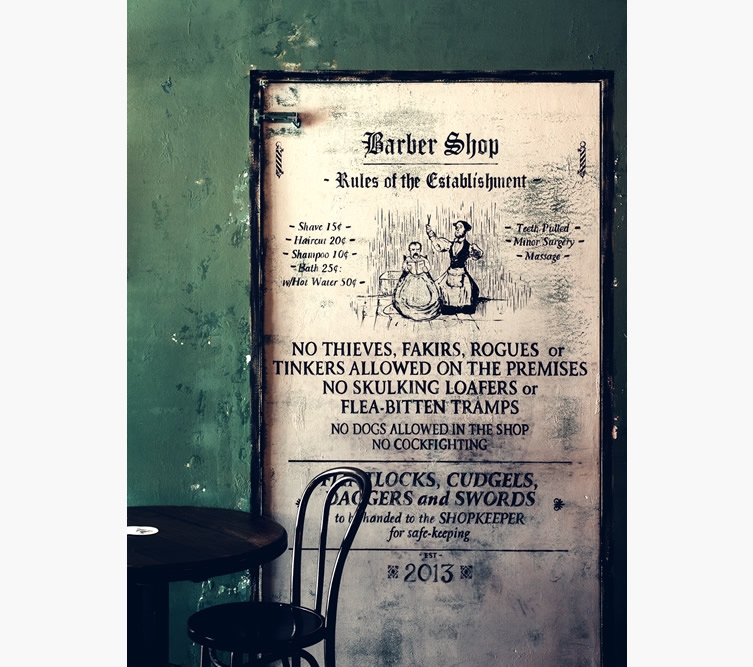 Barber Shop
- Rules of the Establishment -
~ Shave 15¢ ~
~ Haircut 20¢ ~
~ Shampoo 10¢ ~
~ Bath 25¢:
w/Hot Water 50¢ ~
~ Teeth Pulled ~
~ Minor Surgery ~
~ Massage ~
NO THIEVES, FAKIRS, ROGUES or
TINKERS ALLOWED ON THE PREMISES
NO SKULKING LOAFERS or
FLEA-BITTEN TRAMPS
NO DOGS ALLOWED IN THE SHOP
NO COCKFIGHTING
CUDGELS,
DAGGERS and SWORDS
to be handed to the SHOPKEEPER
for safe-keeping
- EST -
2013